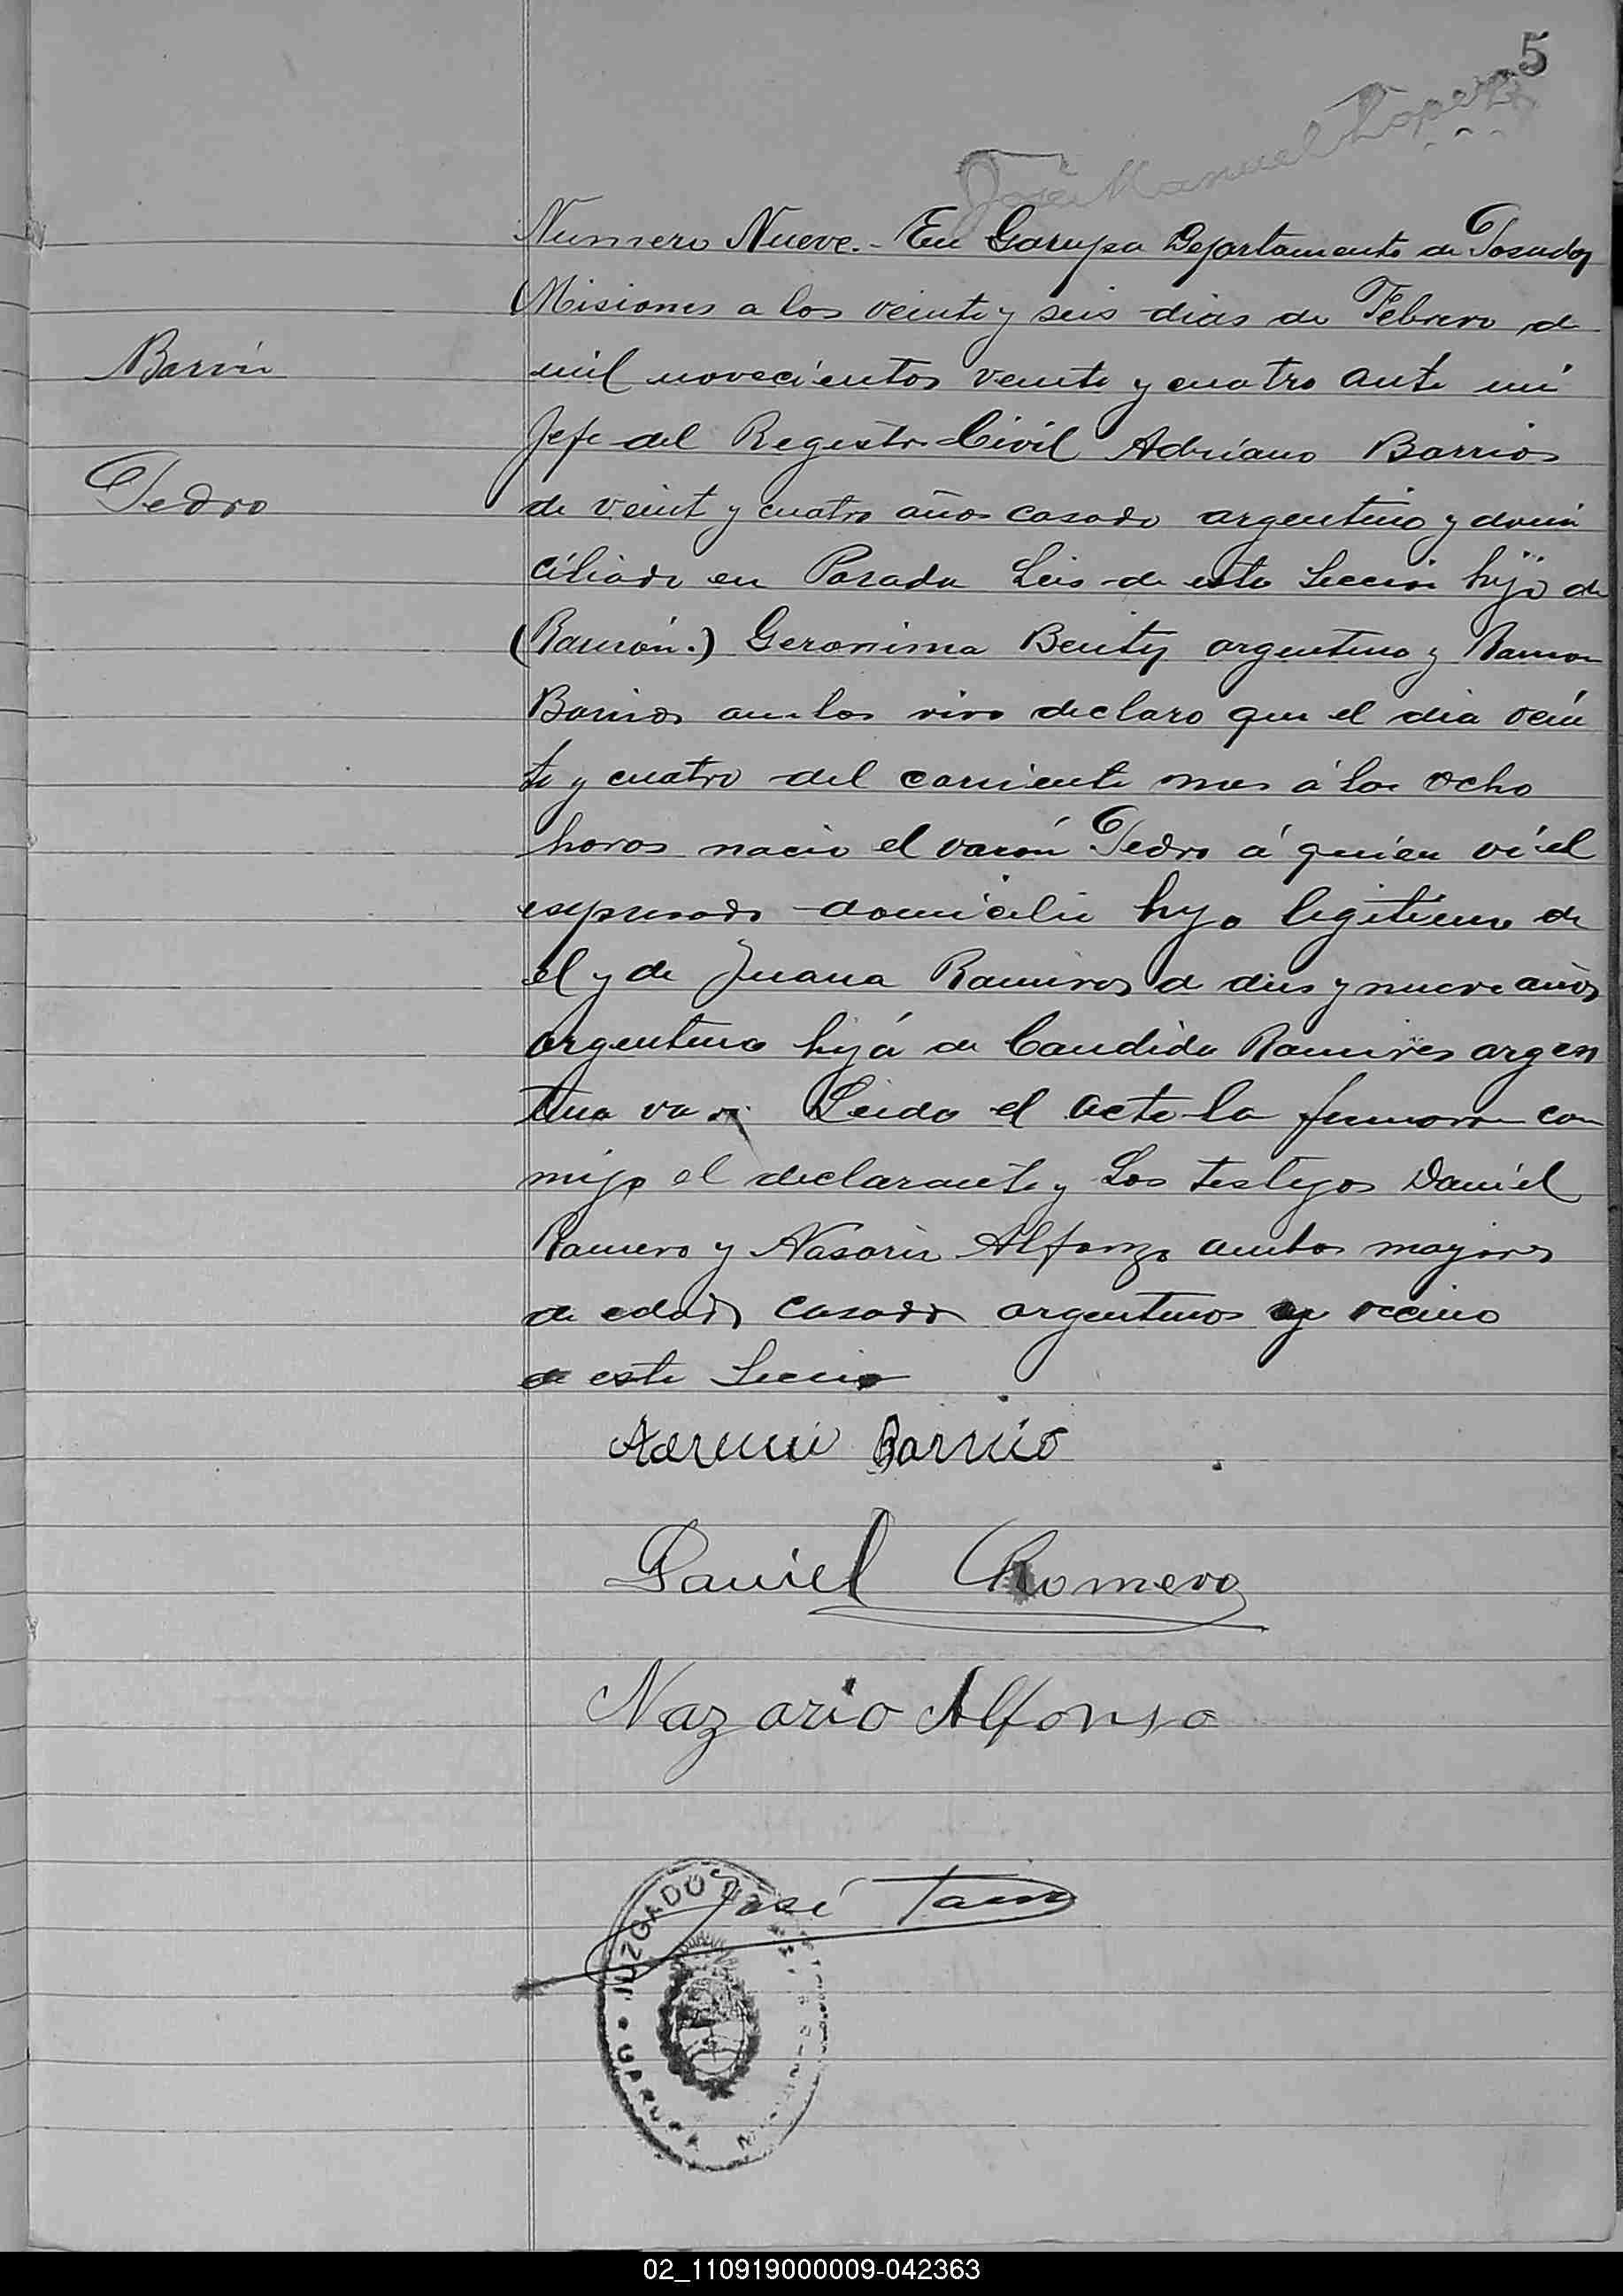 5
José Manuel Lopez
Numero Nueve.- En Garupa Departamento de Posadas
Misiones a los veinte y seis dias de Febrero de
Barrio
mil novecientos veinte y cuatro ante mi
Jefe del Registro Civil Adriano Barrios
Pedro
de veint y cuatro años casado argentino y domi
ciliado en Parada Leis de esta Seccion hijo de
(Ramón.) Geronima Benitz argentino y Ramon
Barrios ambos vivo declaro que el dia vein
te y cuatro del corriente mes á las ocho
horas nacio el varón Pedro á quien ví el
espresado domicilio hijo legitimo de
el y de Juana Ramires de dies y nueve años
argentina hija de Candida Ramires argen
tina Leida el acta la firmaron con
migo el declarante y Los testigos Daniel
Romero y Nasario Alfonzo ambos mayores
de edad casado argentinos y vecino
de esta Seccio
Barrio
Daniel Romero
Nazario Alfonso
José
JUZGADO DE PAZ
GARUPA MISIONES
02_110919000009-042363